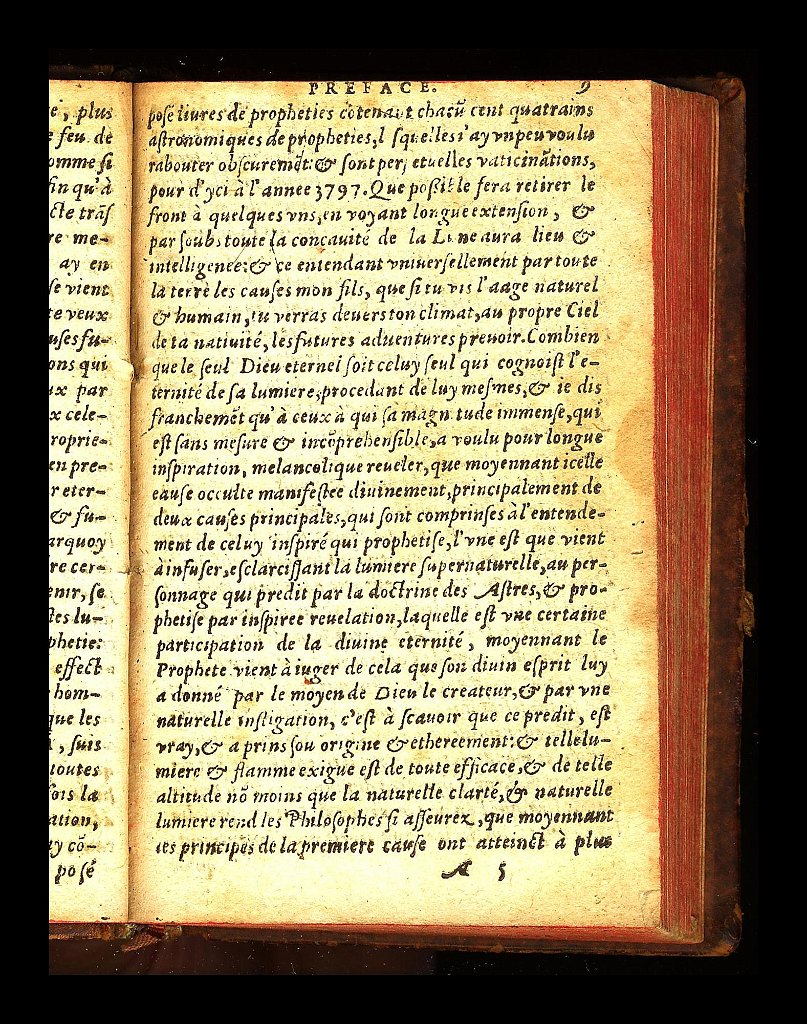 é, plus
e feu de
omme si
fin qu'à
cte trãs
re me-
ay en
se vient
te veux
uses fu-
ons qui
ux par
x cele-
roprie-
en pre-
r eter-
& fu-
arquoy
re cer-
enir, se
tes lu-
phetie:
effect
hom-
que les
, suis
toutes
fois la
ation,
ay cõ-
posé
PREFACE. 9
posé liures de propheties cõtenant chacũ cent quatrains
astronomiques de propheties, lesquelles i'ay vn peu voulu
rabouter obscuremẽt: & sont perpetuelles vaticinãtions,
pour d'yci à l'annee 3797. Que possible fera retirer le
front à quelques vns, en voyant longue extension, &
par soubs toute la concauité de la Lune aura lieu &
intelligence: & ce entendant vniuersellement par toute
la terre les causes mon fils, que si tu vis l'aage naturel
& humain, tu verras deuers ton climat, au propre Ciel
de ta natiuité, les futures aduentures preuoir. Combien
que le seul Dieu eternel soit celuy seul qui cognoist l'e-
ternité de sa lumiere, procedant de luy mesmes, & ie dis
franchemẽt qu'à ceux à qui sa magnitude immense, qui
est sans mesure & incõprehensible, a voulu pour longue
inspiration, melancolique reueler, que moyennant icelle
cause occulte manifestee diuinement, principalement de
deux causes principales, qui sont comprinses à l'entende-
ment de celuy inspiré qui prophetise, l'vne est que vient
à infuser, esclarcissant la lumiere supernaturelle, au per-
sonnage qui predit par la doctrine des Astres, & pro-
phetise par inspiree reuelation, laquelle est vne certaine
participation de la diuine eternité, moyennant le
Prophete vient à iuger de cela que son diuin esprit luy
a donné par le moyen de Dieu le createur, & par vne
naturelle instigation, c'est à scauoir que ce predit, est
vray, & a prins sou origine & ethereement: & telle lu-
miere & flamme exigue est de toute efficace, & de telle
altitude nõ moins que la naturelle clarté, & naturelle
lumiere rend les Philosophes si asseurez, que moyennant
les principes de la premiere cause ont atteinct à plus
A 5